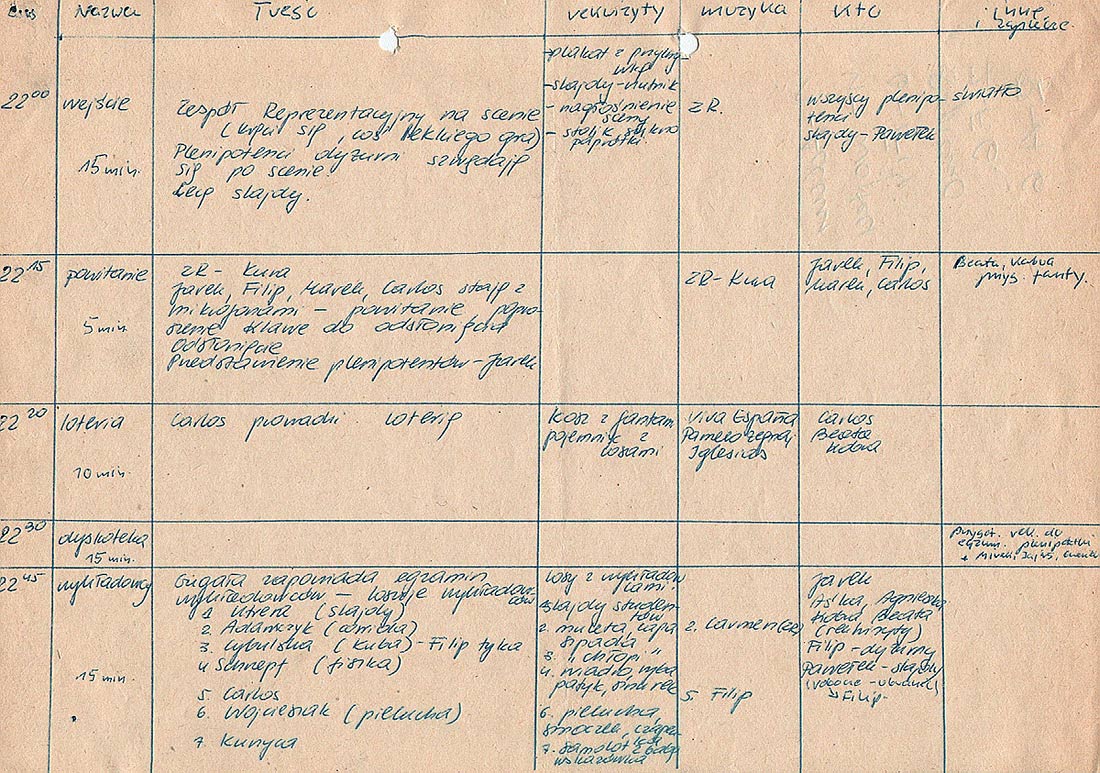 czas Nazwa Treść rekwizyty muzyka Kto inne
i zaplecze
22⁰⁰ wejście
15 min.
Zespół Reprezentacyjny na scenie
(kręci się, coś lekkiego gra)
Plenipotenci dyżurni szwędają
się po scenie.
Lecą slajdy.
- plakat z
- slajdy -
- nagłośnienie
sceny
- stolik, sukno
paprotki.
ZR.
wszyscy plenipo-
tenci
slajdy - Pawełek
światło
22¹⁵ powitanie
5 min
ZR - Kura
Jarek, Filip, Marek, Carlos stają z
mikrofonami – powitanie popro-
szenie Klawe do odsłonięcia
Odsłonięcie
Przedstawienie plenipotentów – Jarek
ZR - Kura
Jarek, Filip,
Marek, Carlos
Beata,
przyg. fanty.
22²⁰ loteria
10 min.
Carlos prowadzi loterię
Kosz z fantami
pojemnik z
losami
Viva España
Iglesias
Carlos
Beata
22³⁰ dyskoteka
15 min.
przygot. rek. do
egzam.
22⁴⁵ wykładowcy
15 min.
Gugała zapowiada egzamin
wykładowców – losuje wykładow-
ców
1. Utrera (slajdy)
2. Adamczyk
3. Cybulska (Kuba) - Filip tyka
4. Schnepf (fizika)
5. Carlos
6. Wojcieszak (pielucha)
7. Kunyca
losy z wykładow-
cami.
1. slajdy studen-
tów
2. muleta, capa
szpada
3. "chłopi"
4. wiadro, ryba
patyk, sznurek
6. pielucha,
smoczek,
7. samolot
wskazówka
2. Carmen (ZR)
5. Filip
Jarek
Aśka, Agnieszka
Beata
(rekwizyty)
Filip - dyżurny
Pawełek - slajdy
Filip.